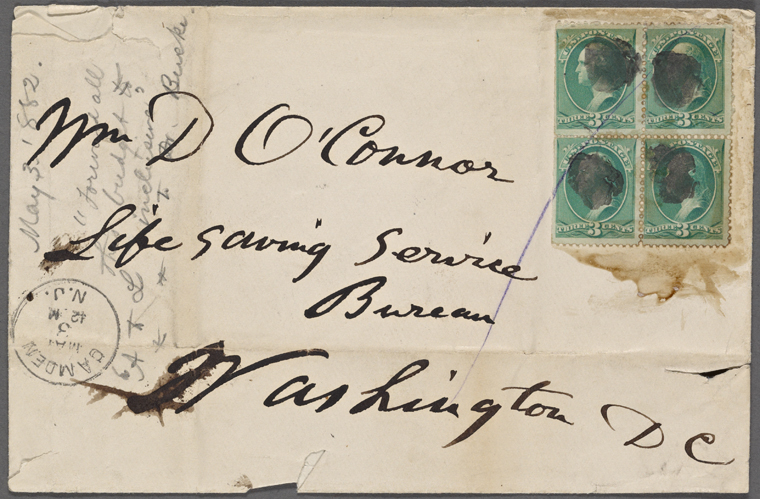 Wm D O'Connor
Life Saving Service
Bureau
Washington D C
U.S. POSTAGE
THREE 3 CENTS
U.S. POSTAGE
THREE 3 CENTS
U.S. POSTAGE
THREE 3 CENTS
U.S. POSTAGE
THREE 3 CENTS
CAMDEN
MAY
3
12 M
N.J.
May 3 1882.
"Forward all
budget &